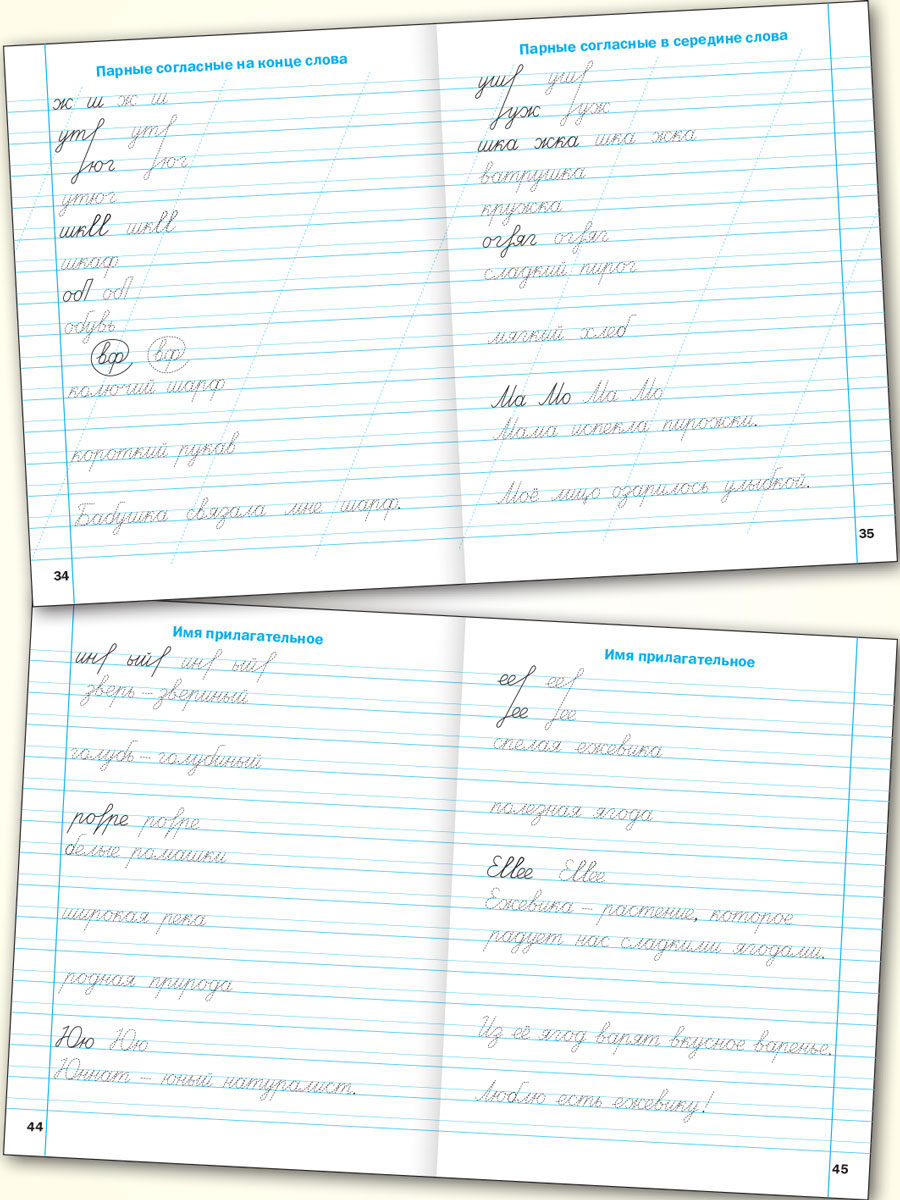 Парные согласные на конце слова
ж ш ж ш
ут ут
юг юг
утюг
шк шк
шкаф
об об
обувь
вф вф
колючий шарф
короткий рукав
Бабушка связала мне шарф.
34
Парные согласные в середине слова
уш уш
уж уж
шка жка шка жка
ватрушка
кружка
ог яг ог яг
сладкий пирог
мягкий хлеб
Ма Мо Ма Мо
Мама испекла пирожки.
Моё лицо озарилось улыбкой.
35
Имя прилагательное
ин ый ин ый
зверь – звериный
голубь – голубиный
ро ре ро ре
белые ромашки
широкая река
родная природа
Юю Юю
Юннат – юный натуралист.
44
Имя прилагательное
ее ее
ее ее
спелая ежевика
полезная ягода
Е ее Е ее
Ежевика – растение, которое
радует нас сладкими ягодами.
Из её ягод варят вкусное варенье.
Люблю есть ежевику!
45